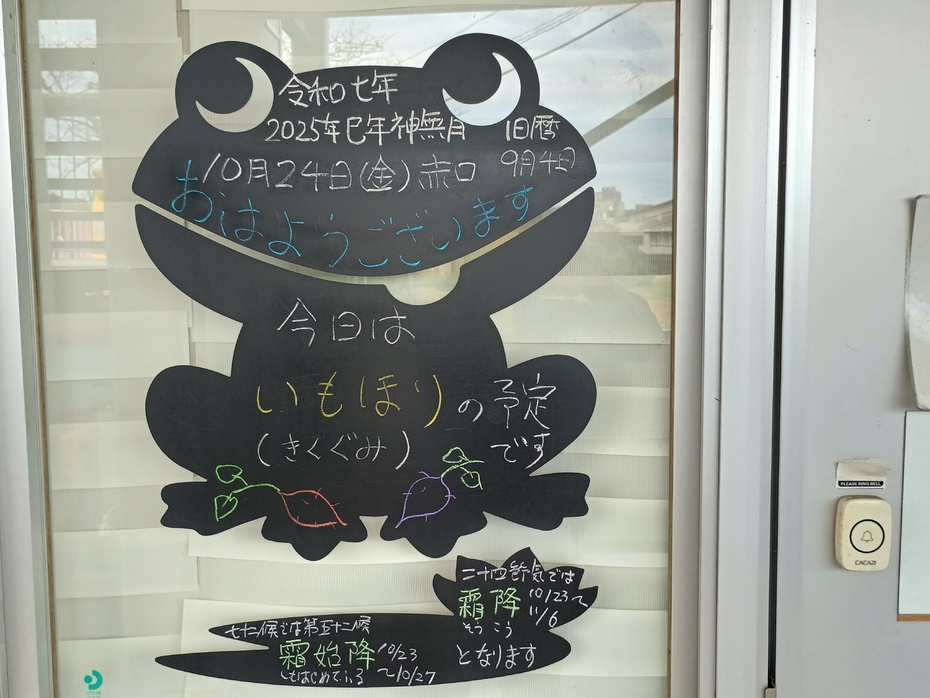 令和七年
2025年巳年神無月 旧暦
10月24日(金)赤口 9月4日
おはようございます
今日は
いもほりの予定
(きくぐみ) です
二十四節気では
霜降 10/23〜
そうこう 11/6
となります
七十二候では第五十二候
霜始降 10/23
しもはじめてふる 〜10/27
PLEASE RING BELL
CACAZI